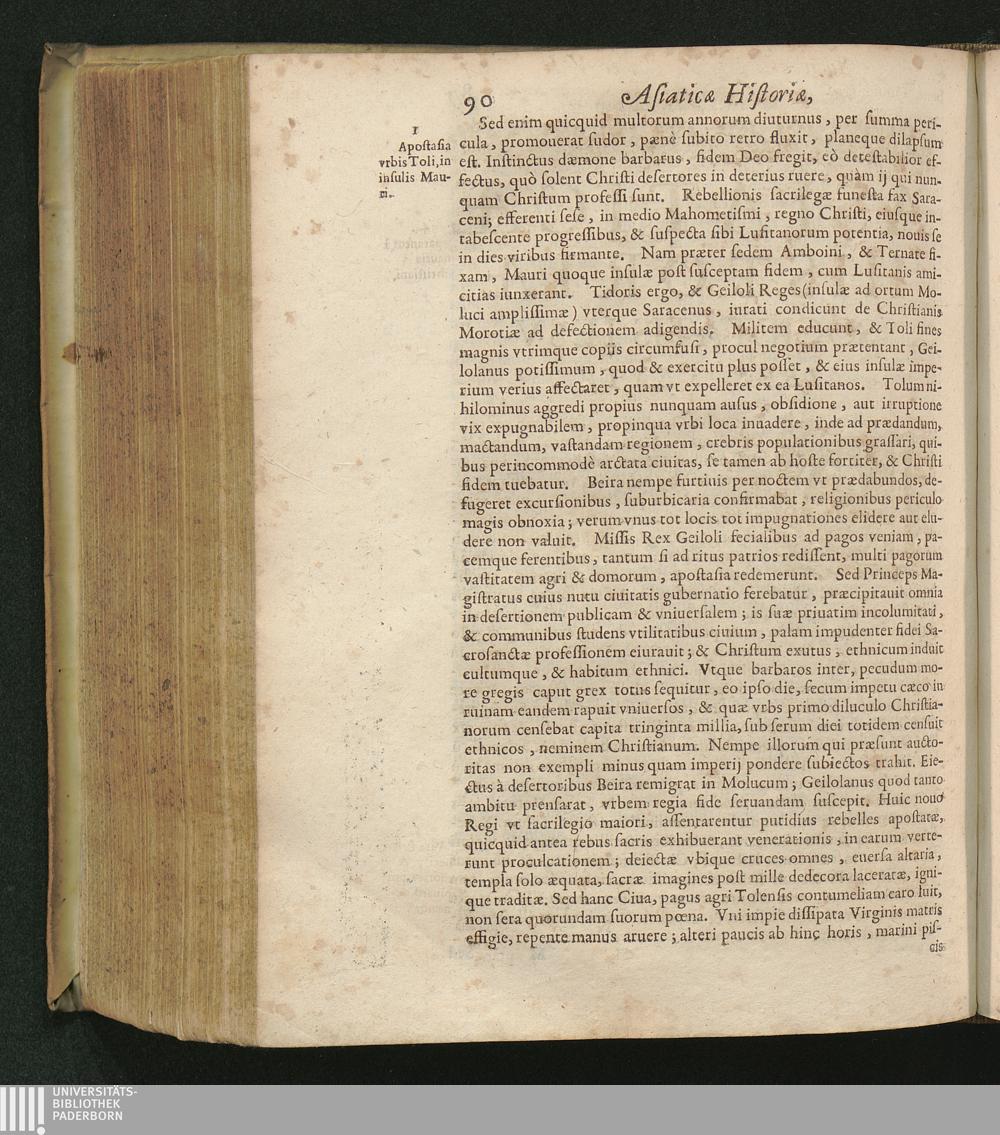 90 Asiaticæ Historiæ,
1
Apostasia
vrbis Toli, in
insulis Mau-
ri.
Sed enim quicquid multorum annorum diuturnus, per summa peri-
cula, promouerat sudor, pænè subito retro fluxit, planeque dilapsum
est. Instinctus dæmone barbarus, fidem Deo fregit, eò detestabilior ef-
fectus, quò solent Christi desertores in deterius ruere, quàm ij qui nun-
quam Christum professi sunt. Rebellionis sacrilegæ funesta fax Sara-
ceni; efferenti sese, in medio Mahometismi, regno Christi, eiusque in-
tabescente progressibus, & suspecta sibi Lusitanorum potentia, nouis se
in dies viribus firmante. Nam præter sedem Amboini, & Ternate fi-
xam, Mauri quoque insulæ post susceptam fidem, cum Lusitanis ami-
citias iunxerant. Tidoris ergo, & Geiloli Reges (insulæ ad ortum Mo-
luci amplissimæ) vterque Saracenus, iurati condicunt de Christianis
Morotiæ ad defectionem adigendis. Militem educunt, & Toli fines
magnis vtrimque copiis circumfusi, procul negotium prætentant, Gei-
lolanus potissimum, quod & exercitu plus posset, & eius insulæ impe-
rium verius affectaret, quam vt expelleret ex ea Lusitanos. Tolum ni-
hilominus aggredi propius nunquam ausus, obsidione, aut irruptione
vix expugnabilem, propinqua vrbi loca inuadere, inde ad prædandum,
mactandum, vastandam regionem, crebris populationibus grassari, qui-
bus perincommodè arctata ciuitas, se tamen ab hoste fortiter, & Christi
fidem tuebatur. Beira nempe furtiuis per noctem vt prædabundos, de-
fugeret excursionibus, suburbicaria confirmabat, religionibus periculo
magis obnoxia; verum vnus tot locis tot impugnationes elidere aut elu-
dere non valuit. Missis Rex Geiloli fecialibus ad pagos veniam, pa-
cemque ferentibus, tantum si ad ritus patrios redissent, multi pagorum
vastitatem agri & domorum, apostasia redemerunt. Sed Princeps Ma-
gistratus cuius nutu ciuitatis gubernatio ferebatur, præcipitauit omnia
in desertionem publicam & vniuersalem; is suæ priuatim incolumitati,
& communibus studens vtilitatibus ciuium, palam impudenter fidei Sa-
crosanctæ professionem eiurauit; & Christum exutus, ethnicum induit
cultumque, & habitum ethnici. Vtque barbaros inter, pecudum mo-
re gregis caput grex totus sequitur, eo ipso die, secum impetu cæco in
ruinam eandem rapuit vniuersos, & quæ vrbs primo diluculo Christia-
norum censebat capita tringinta millia, sub serum diei totidem censuit
ethnicos, neminem Christianum. Nempe illorum qui præsunt aucto-
ritas non exempli minus quam imperij pondere subiectos trahit. Eie-
ctus à desertoribus Beira remigrat in Molucum; Geilolanus quod tanto
ambitu prensarat, vrbem regia fide seruandam suscepit. Huic nouo
Regi vt sacrilegio maiori, assentarentur putidius rebelles apostatæ,
quicquid antea rebus sacris exhibuerant venerationis, in earum verte-
runt proculcationem; deiectæ vbique cruces omnes, euersa altaria,
templa solo æquata, sacræ imagines post mille dedecora laceratæ, igni-
que traditæ. Sed hanc Ciua, pagus agri Tolensis contumeliam caro luit,
non sera quorundam suorum pœna. Vni impie dissipata Virginis matris
effigie, repente manus aruere; alteri paucis ab hinc horis, marini pis-
cis
UNIVERSITÄTS-
BIBLIOTHEK
PADERBORN